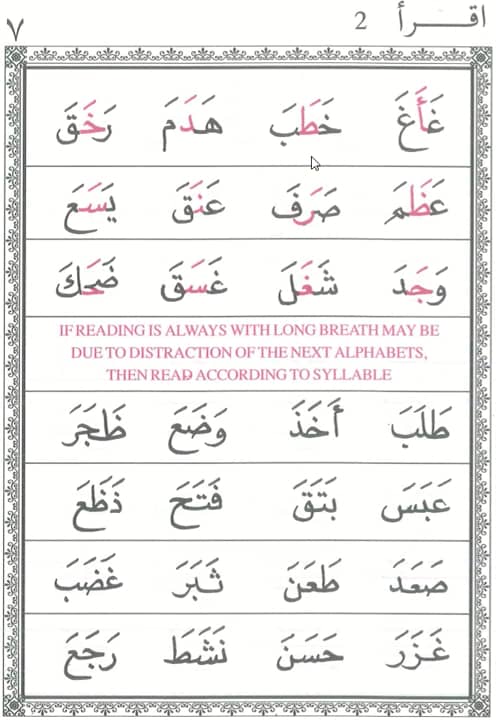 اقرأ 2 ٧
غَأَغَ خَطَبَ هَدَمَ رَخَقَ
عَظَمَ صَرَفَ عَنَقَ يَسَعَ
وَجَدَ شَغَلَ غَسَقَ ضَحَكَ
IF READING IS ALWAYS WITH LONG BREATH MAY BE
DUE TO DISTRACTION OF THE NEXT ALPHABETS,
THEN READ ACCORDING TO SYLLABLE
طَلَبَ أَخَذَ وَضَعَ ظَجَرَ
عَبَسَ بَتَقَ فَتَحَ ذَظَعَ
صَعَدَ طَعَنَ ثَبَرَ غَضَبَ
غَزَرَ حَسَنَ نَشَطَ رَجَعَ